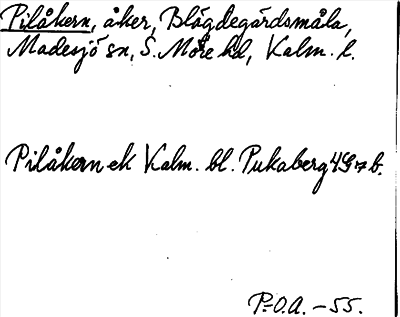 Pilåkern, åker, Blågdegårdsmåla,
Madesjö sn, S. Möre hd, Kalm. l.
Pilåkern ek Kalm. bl. Pukaberg 4G7b.
P.-O.A. -55.